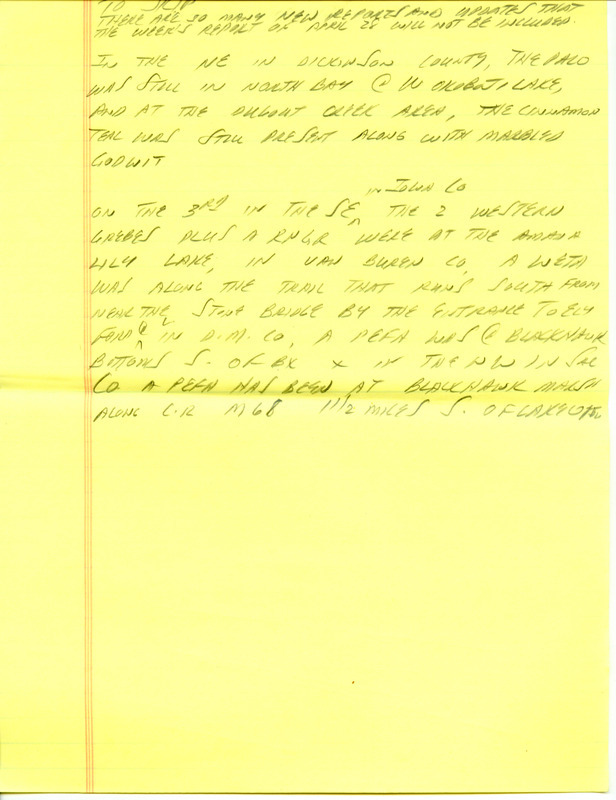 TO SKIP
THERE ARE SO MANY NEW REPORTS AND UPDATES THAT
THE WEEK'S REPORT OF APRIL 28 WILL NOT BE INCLUDED.
IN THE NE IN DICKINSON COUNTY, THE PALO
WAS STILL IN NORTH BAY @ W OKOBOJI LAKE,
AND AT THE DUGOUT CREEK AREA, THE CINNAMON
TEAL WAS STILL PRESENT ALONG WITH MARBLED
GODWIT
IN IOWA CO
ON THE 3RD IN THE SE ^ THE 2 WESTERN
GREBES PLUS A RNGR WERE AT THE AMANA
LILY LAKE, IN VAN BUREN CO, A WETA
WAS ALONG THE TRAIL THAT RUNS SOUTH FROM
NEAR THE STONE BRIDGE BY THE ENTRANCE TO ELY
FORD IN D.M. CO, A PEFA WAS @ BLACKHAWK
BOTTOMS S. OF BX IN THE NW IN SAC
CO A PEFA HAS BEEN AT BLACKHAWK MARSH
ALONG C.R M68 1 1/2 MILES S. OF LAKE